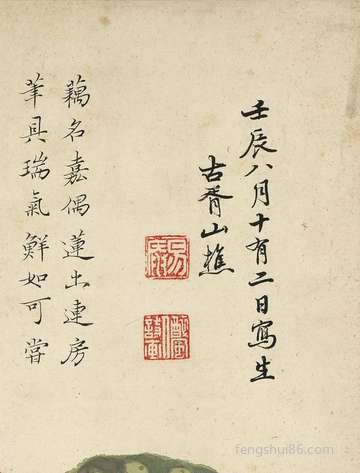 壬辰八月十有二日寫生
古胥山樵
藕名嘉偶蓮出連房
筆具瑞氣鮮如可嘗
fengshui86.com